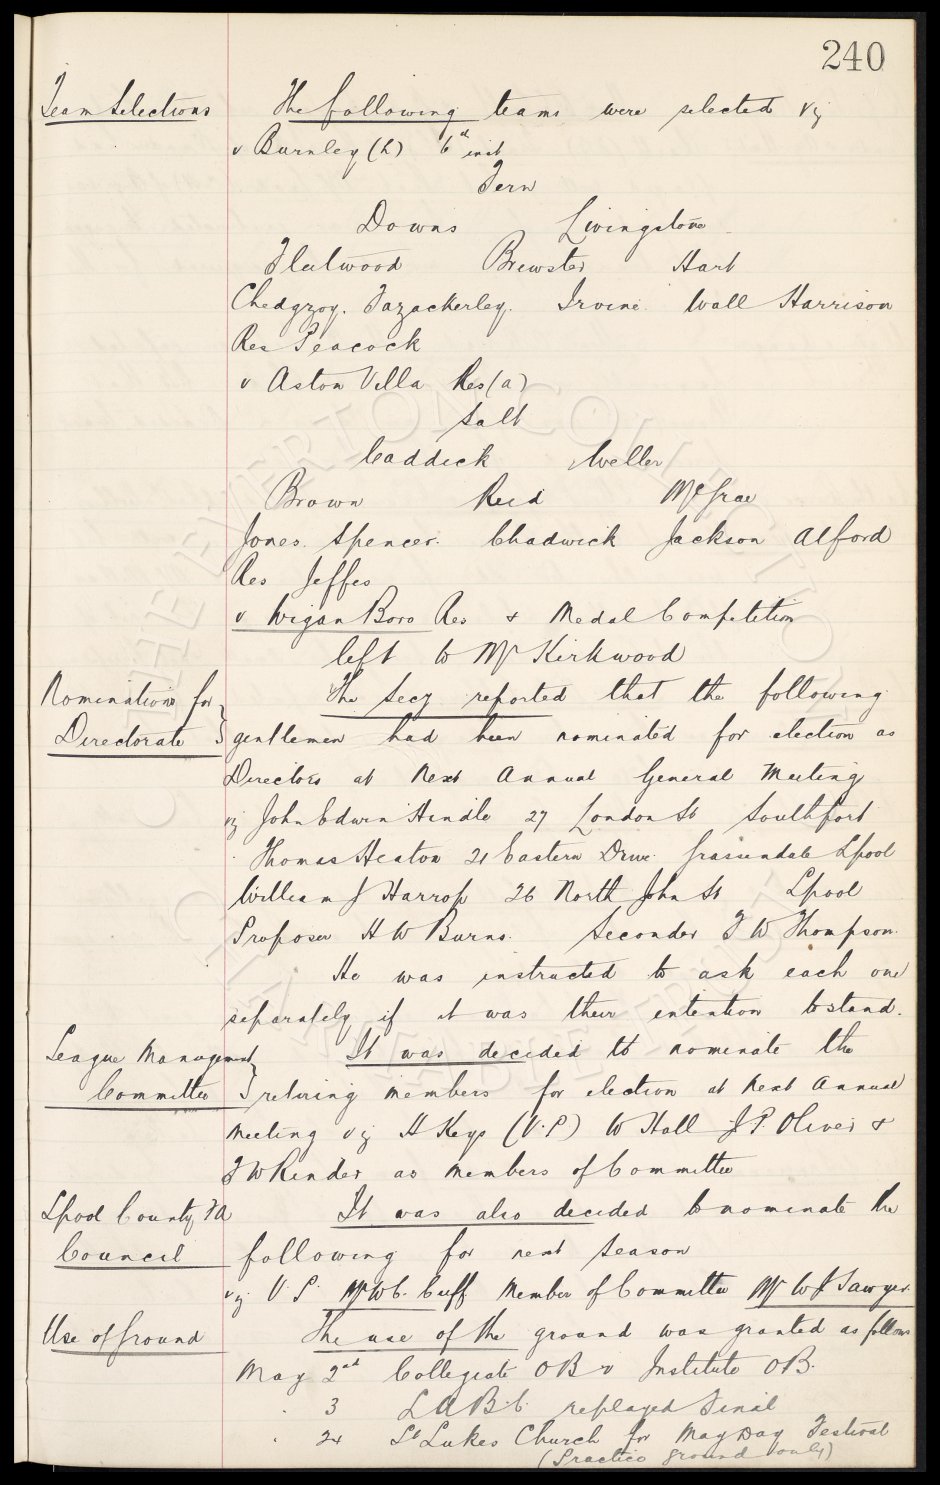 240
Team Selections
The following teams were selected viz
v Burnley (h) 6th inst
Fern
Downs Livingstone
Fleetwood Brewster Hart
Chedgzoy. Fazackerley. Irvine. Wall Harrison
Res Peacock
v Aston Villa Res (a)
Salt
Caddick Weller
Brown Reid McGrae
Jones. Spencer. Chadwick Jackson Alford
Res Jeffes
v Wigan Boro Res & Medal Competition
left to Mr Kirkwood
Nominations for
Directorate
The Secy reported that the following
gentlemen had been nominated for election as
Directors at next Annual General Meeting
viz John Edwin Hindle 27 London St Southport
Thomas Heaton 21 Eastern Drive Grassendale Lpool
William J Harrop 26 North John St Lpool
Proposer H W Burns. Seconder F W Thompson.
He was instructed to ask each one
separately if it was their intention to stand.
League Management
Committee
It was decided to nominate the
retiring members for election at next Annual
Meeting viz H Keys (V.P) W Hall J. P. Oliver &
F W Rinder as members of Committee
Lpool County FA
Council
It was also decided to nominate the
following for next season
viz. V. P. Mr W C. Cuff Member of Committee Mr W J Sawyer.
Use of Ground
The use of the ground was granted as follows
May 2nd Collegiate OB v Institute OB.
3 LUBC. replayed Final
24 St Lukes Church for May Day Festival
(Practice ground only)
THE EVERTON COLLECTION